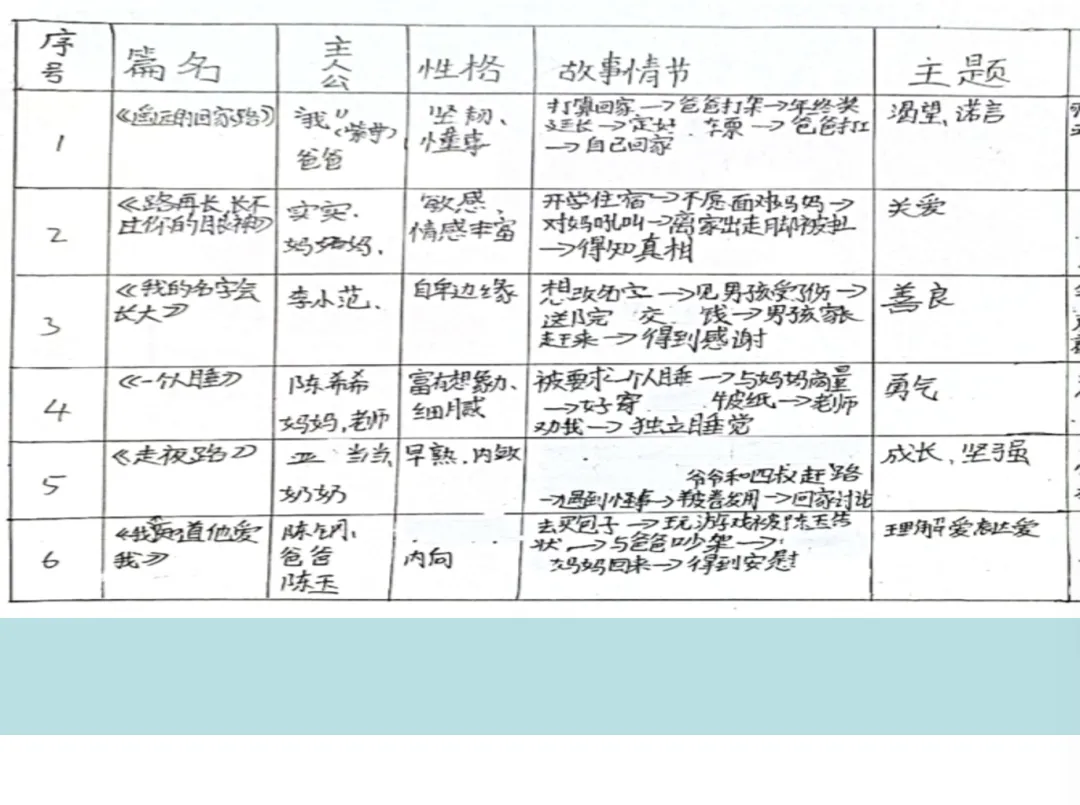 序号 篇名 主人公 性格 故事情节 主题
1 《遥远的回家路》 "我" 爸爸 坚韧、懂事 打算回家→爸爸打架→年终奖
延长→定好 车票→爸爸打工
→自己回家 渴望、诺言
2 《路再长,长不过你的眼神》 实实. 妈妈 敏感、情感丰富 开学住宿→不愿面对妈妈→
对妈吼叫→离家出走脚被扯
→得知真相 关爱
3 《我的名字会长大》 李小范. 自卑边缘 想改名字→见男孩受伤→
送院 交 饯→男孩家长
赶来→得到感谢 善良
4 《一个人睡》 陈希希 妈妈,老师 富有想象力、细腻 被要求一个人睡→与妈妈商量
→好穿 牛皮纸→老师
劝我→独立睡觉 勇气
5 《走夜路》 当当, 奶奶 早熟.内敏
爷爷和四叔赶路
→遇到怪事→回家讨论 成长、坚强
6 《我知道他爱我》 爸爸 陈玉 内向 去买包子→玩游戏被陈玉告
状→与爸爸吵架→
妈妈回来→得到安慰 理解爱表达爱